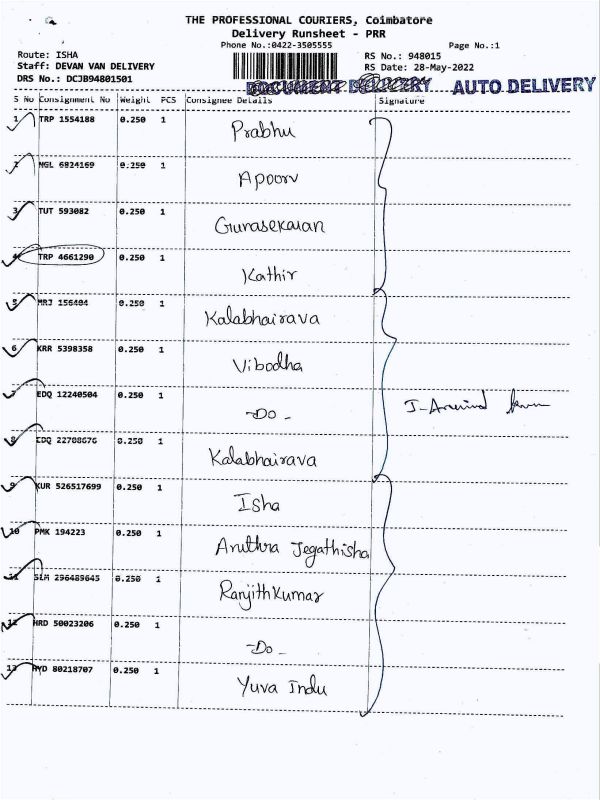 THE PROFESSIONAL COURIERS, Coimbatore
Delivery Runsheet - PRR
Phone No.:0422-3505555 Page No.:1
Route: ISHA RS No.: 948015
Staff: DEVAN VAN DELIVERY RS Date: 28-May-2022
DRS No.: DCJB94801501
DOCUMENT DELIVERY AUTO DELIVERY
S No Consignment No Weight PCS Consignee Details Signature
1 TRP 1554188 0.250 1 Prabhu
2 NGL 6824169 0.250 1 Apoorv
3 TUT 593082 0.250 1 Gunasekaran
4 TRP 4661290 0.250 1 Kathir
5 MRJ 156404 0.250 1 Kalabhairava
6 KRR 5398358 0.250 1 Vibodha
7 EDQ 12240504 0.250 1 -Do-
8 EDQ 22708676 0.250 1 Kalabhairava
9 KUR 526517699 0.250 1 Isha
10 PMK 194223 0.250 1 Aruthra Jegathisha
11 SLM 296489645 0.250 1 Ranjithkumar
12 HRD 50023206 0.250 1 -Do-
13 HYD 80218707 0.250 1 Yuva Indu